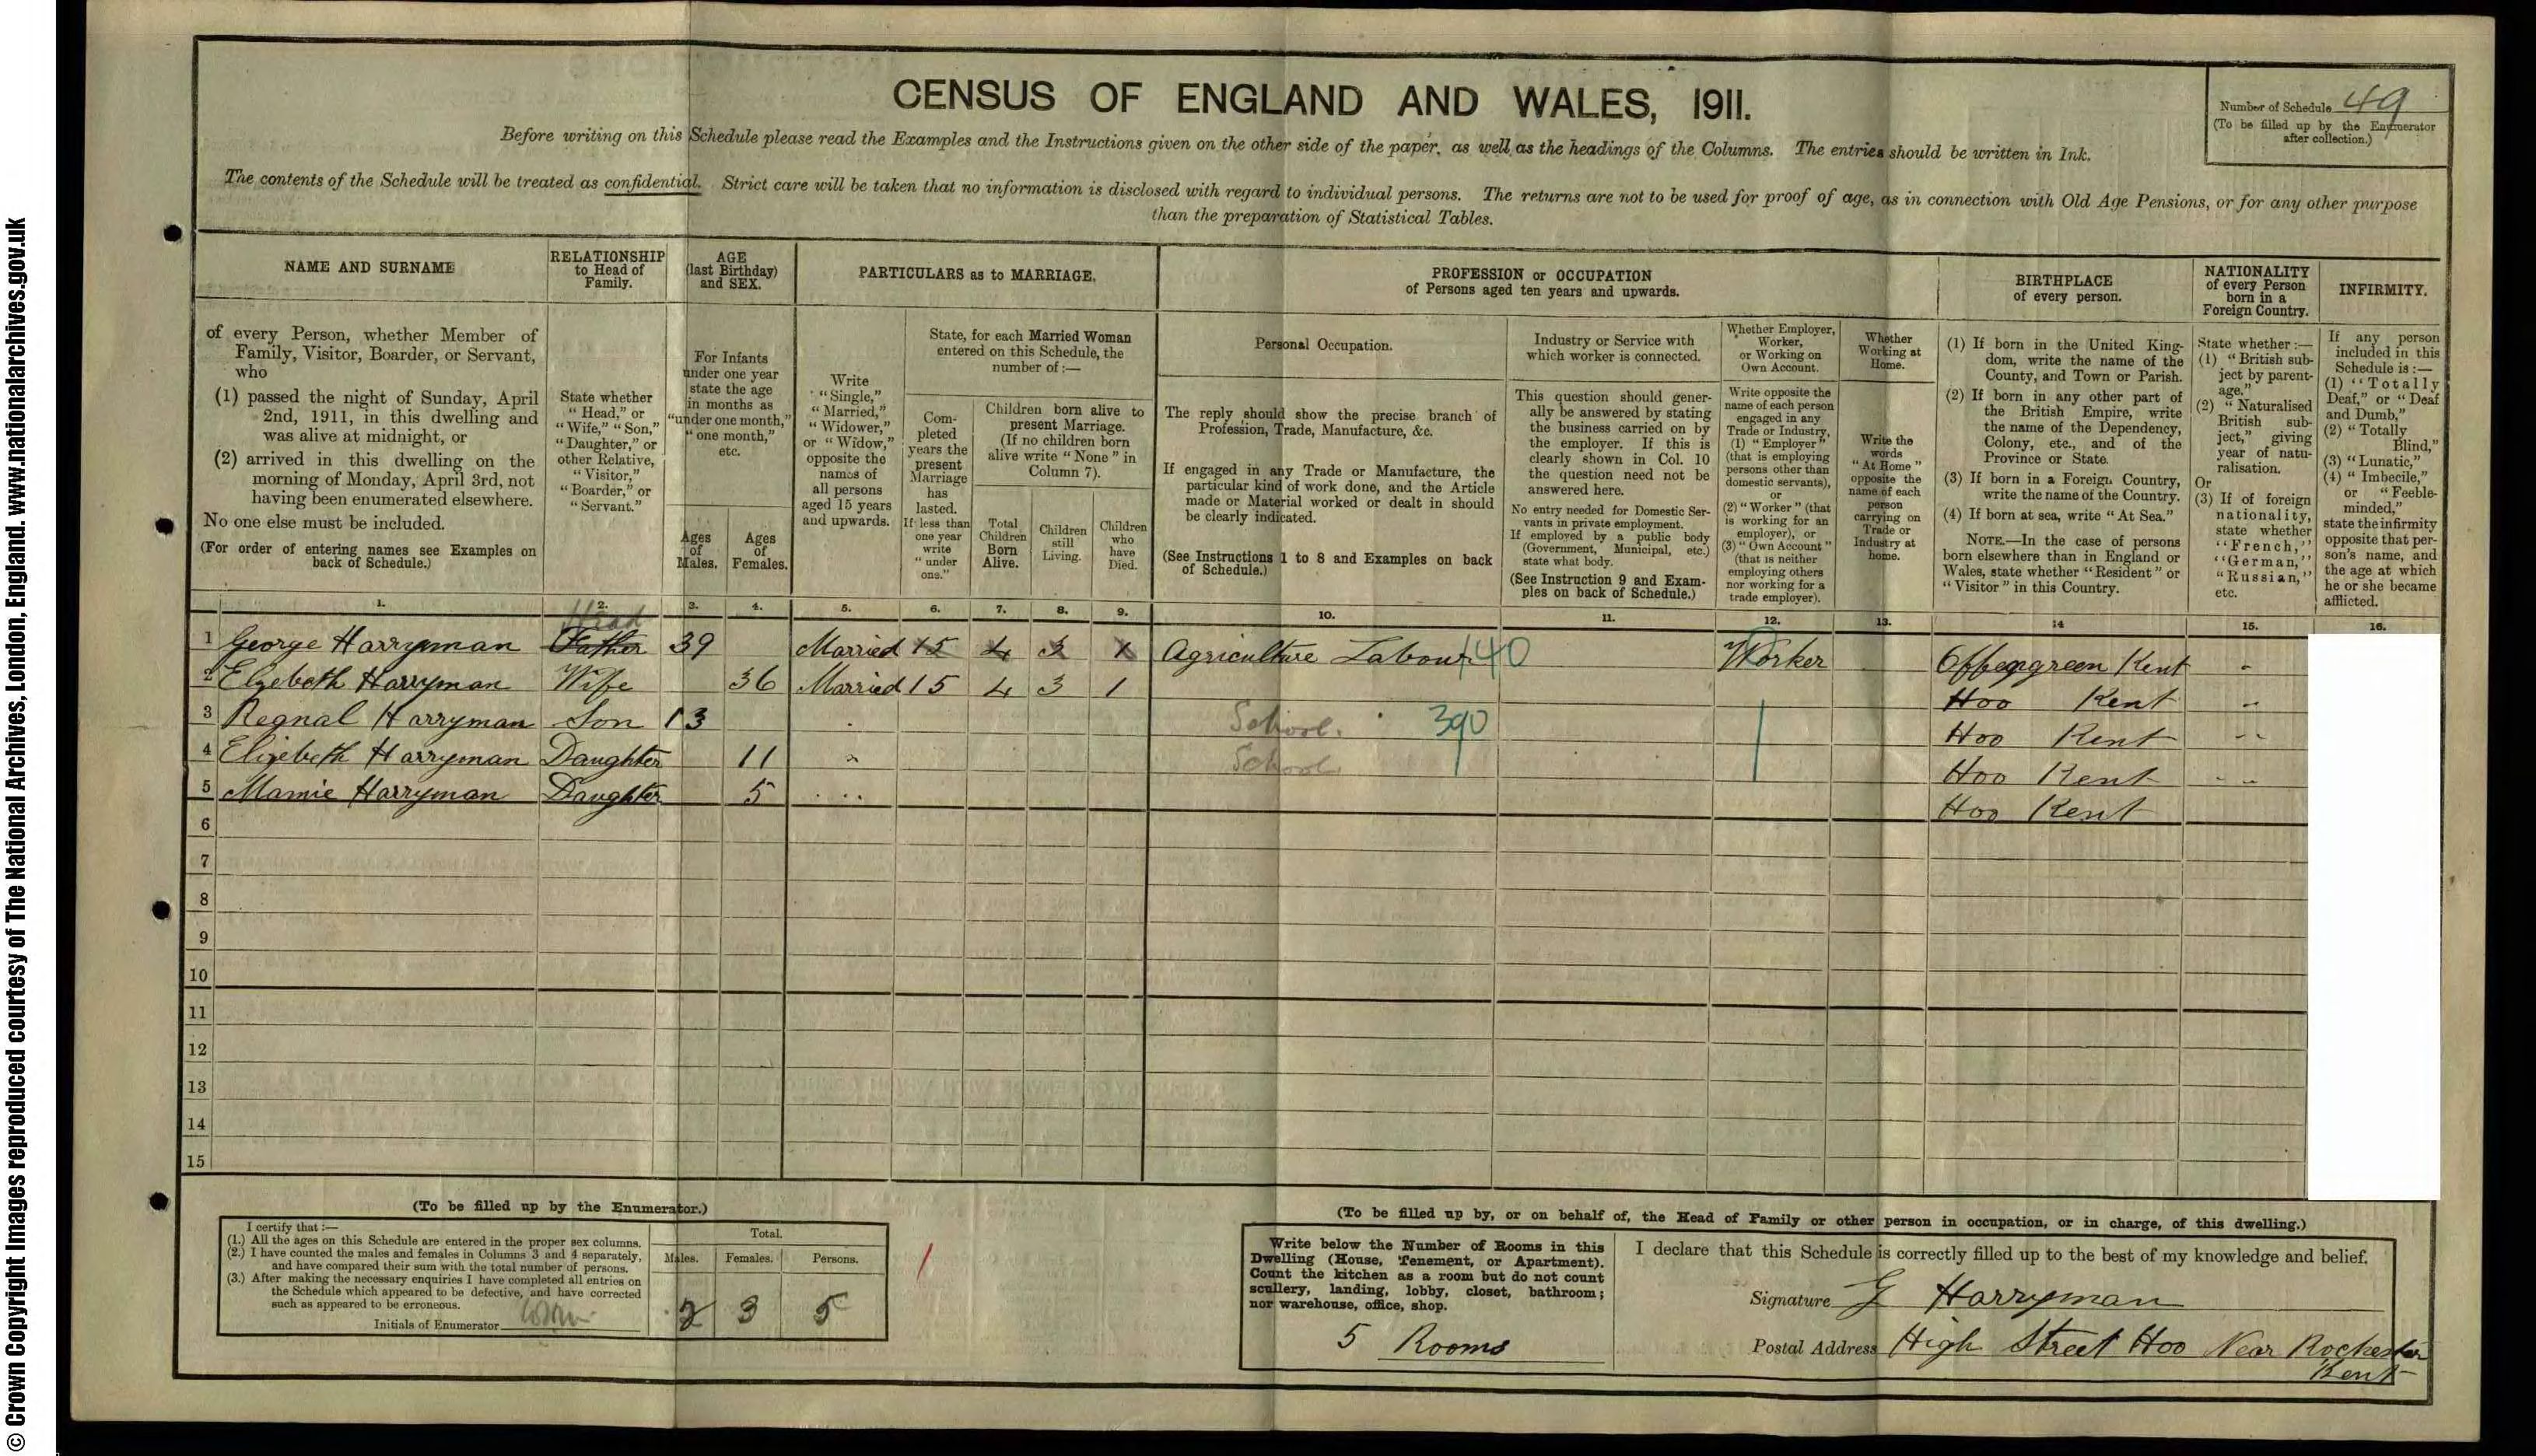 © Crown Copyright Images reproduced courtesy of The National Archives, London, England. www.nationalarchives.gov.uk
CENSUS OF ENGLAND AND WALES, 1911.
Number of Schedule 49
(To be filled up by the Enumerator
after collection.)
Before writing on this Schedule please read the Examples and the Instructions given on the other side of the paper, as well as the headings of the Columns. The entries should be written in Ink.
The contents of the Schedule will be treated as confidential. Strict care will be taken that no information is disclosed with regard to individual persons. The returns are not to be used for proof of age, as in connection with Old Age Pensions, or for any other purpose
than the preparation of Statistical Tables.
NAME AND SURNAME
of every Person, whether Member of
Family, Visitor, Boarder, or Servant,
who
(1) passed the night of Sunday, April
2nd, 1911, in this dwelling and
was alive at midnight, or
(2) arrived in this dwelling on the
morning of Monday, April 3rd, not
having been enumerated elsewhere.
No one else must be included.
(For order of entering names see Examples on
back of Schedule.)
RELATIONSHIP
to Head of
Family.
State whether
"Head," or
"Wife," "Son,"
"Daughter," or
other Relative,
"Visitor,"
"Boarder," or
"Servant."
AGE
(last Birthday)
and SEX.
For Infants
under one year
state the age
in months as
"under one month,"
"one month,"
etc.
Ages
of
Males.
Ages
of
Females.
PARTICULARS as to MARRIAGE.
Write
"Single,"
"Married,"
"Widower,"
or "Widow,"
opposite the
names of
all persons
aged 15 years
and upwards.
State, for each Married Woman
entered on this Schedule, the
number of :—
Com-
pleted
years the
present
Marriage
has
lasted.
If less than
one year
write
"under
one."
Children born alive to
present Marriage.
(If no children born
alive write "None" in
Column 7).
Total
Children
Born
Alive.
Children
still
Living.
Children
who
have
Died.
PROFESSION or OCCUPATION
of Persons aged ten years and upwards.
Personal Occupation.
The reply should show the precise branch of
Profession, Trade, Manufacture, &c.
If engaged in any Trade or Manufacture, the
particular kind of work done, and the Article
made or Material worked or dealt in should
be clearly indicated.
(See Instructions 1 to 8 and Examples on back
of Schedule.)
Industry or Service with
which worker is connected.
This question should gener-
ally be answered by stating
the business carried on by
the employer. If this is
clearly shown in Col. 10
the question need not be
answered here.
No entry needed for Domestic Ser-
vants in private employment.
If employed by a public body
(Government, Municipal, etc.)
state what body.
(See Instruction 9 and Exam-
ples on back of Schedule.)
Whether Employer,
Worker,
or Working on
Own Account.
Write opposite the
name of each person
engaged in any
Trade or Industry,
(1) "Employer"
(that is employing
persons other than
domestic servants),
or
(2) "Worker" (that
is working for an
employer), or
(3) "Own Account"
(that is neither
employing others
nor working for a
trade employer).
Whether
Working at
Home.
Write the
words
"At Home"
opposite the
name of each
person
carrying on
Trade or
Industry at
home.
BIRTHPLACE
of every person.
(1) If born in the United King-
dom, write the name of the
County, and Town or Parish.
(2) If born in any other part of
the British Empire, write
the name of the Dependency,
Colony, etc., and of the
Province or State.
(3) If born in a Foreign Country,
write the name of the Country.
(4) If born at sea, write "At Sea."
NOTE.—In the case of persons
born elsewhere than in England or
Wales, state whether "Resident" or
"Visitor" in this Country.
NATIONALITY
of every Person
born in a
Foreign Country.
State whether :—
(1) "British sub-
ject by parent-
age,"
(2) "Naturalised
British sub-
ject," giving
year of natu-
ralisation.
Or
(3) If of foreign
nationality,
state whether
"French,"
"German,"
"Russian,"
etc.
INFIRMITY.
If any person
included in this
Schedule is :—
(1) "Totally
Deaf," or "Deaf
and Dumb,"
(2) "Totally
Blind,"
(3) "Lunatic,"
(4) "Imbecile,"
or "Feeble-
minded,"
state the infirmity
opposite that per-
son's name, and
the age at which
he or she became
afflicted.
1. 2. 3. 4. 5. 6. 7. 8. 9. 10. 11. 12. 13. 14 15. 16.
Head
1 George Harryman Father 39 Married 15 4 3 1 Agriculture Labour 140 Worker Offengreen Kent
2 Elzebeth Harryman Wife 36 Married 15 4 3 1 Hoo Kent
3 Regnal Harryman Son 13 School. 390 Hoo Kent
4 Elizebeth Harryman Daughter 11 School Hoo Kent
5 Mamie Harryman Daughter 5 Hoo Kent
6
7
8
9
10
11
12
13
14
15
(To be filled up by the Enumerator.)
I certify that :—
(1.) All the ages on this Schedule are entered in the proper sex columns.
(2.) I have counted the males and females in Columns 3 and 4 separately,
and have compared their sum with the total number of persons.
(3.) After making the necessary enquiries I have completed all entries on
the Schedule which appeared to be defective, and have corrected
such as appeared to be erroneous.
Initials of Enumerator
Total.
Males. Females. Persons.
2 3 5
(To be filled up by, or on behalf of, the Head of Family or other person in occupation, or in charge, of this dwelling.)
Write below the Number of Rooms in this
Dwelling (House, Tenement, or Apartment).
Count the kitchen as a room but do not count
scullery, landing, lobby, closet, bathroom;
nor warehouse, office, shop.
5 Rooms
I declare that this Schedule is correctly filled up to the best of my knowledge and belief.
Signature G Harryman
Postal Address High Street Hoo Near Rochester
Kent